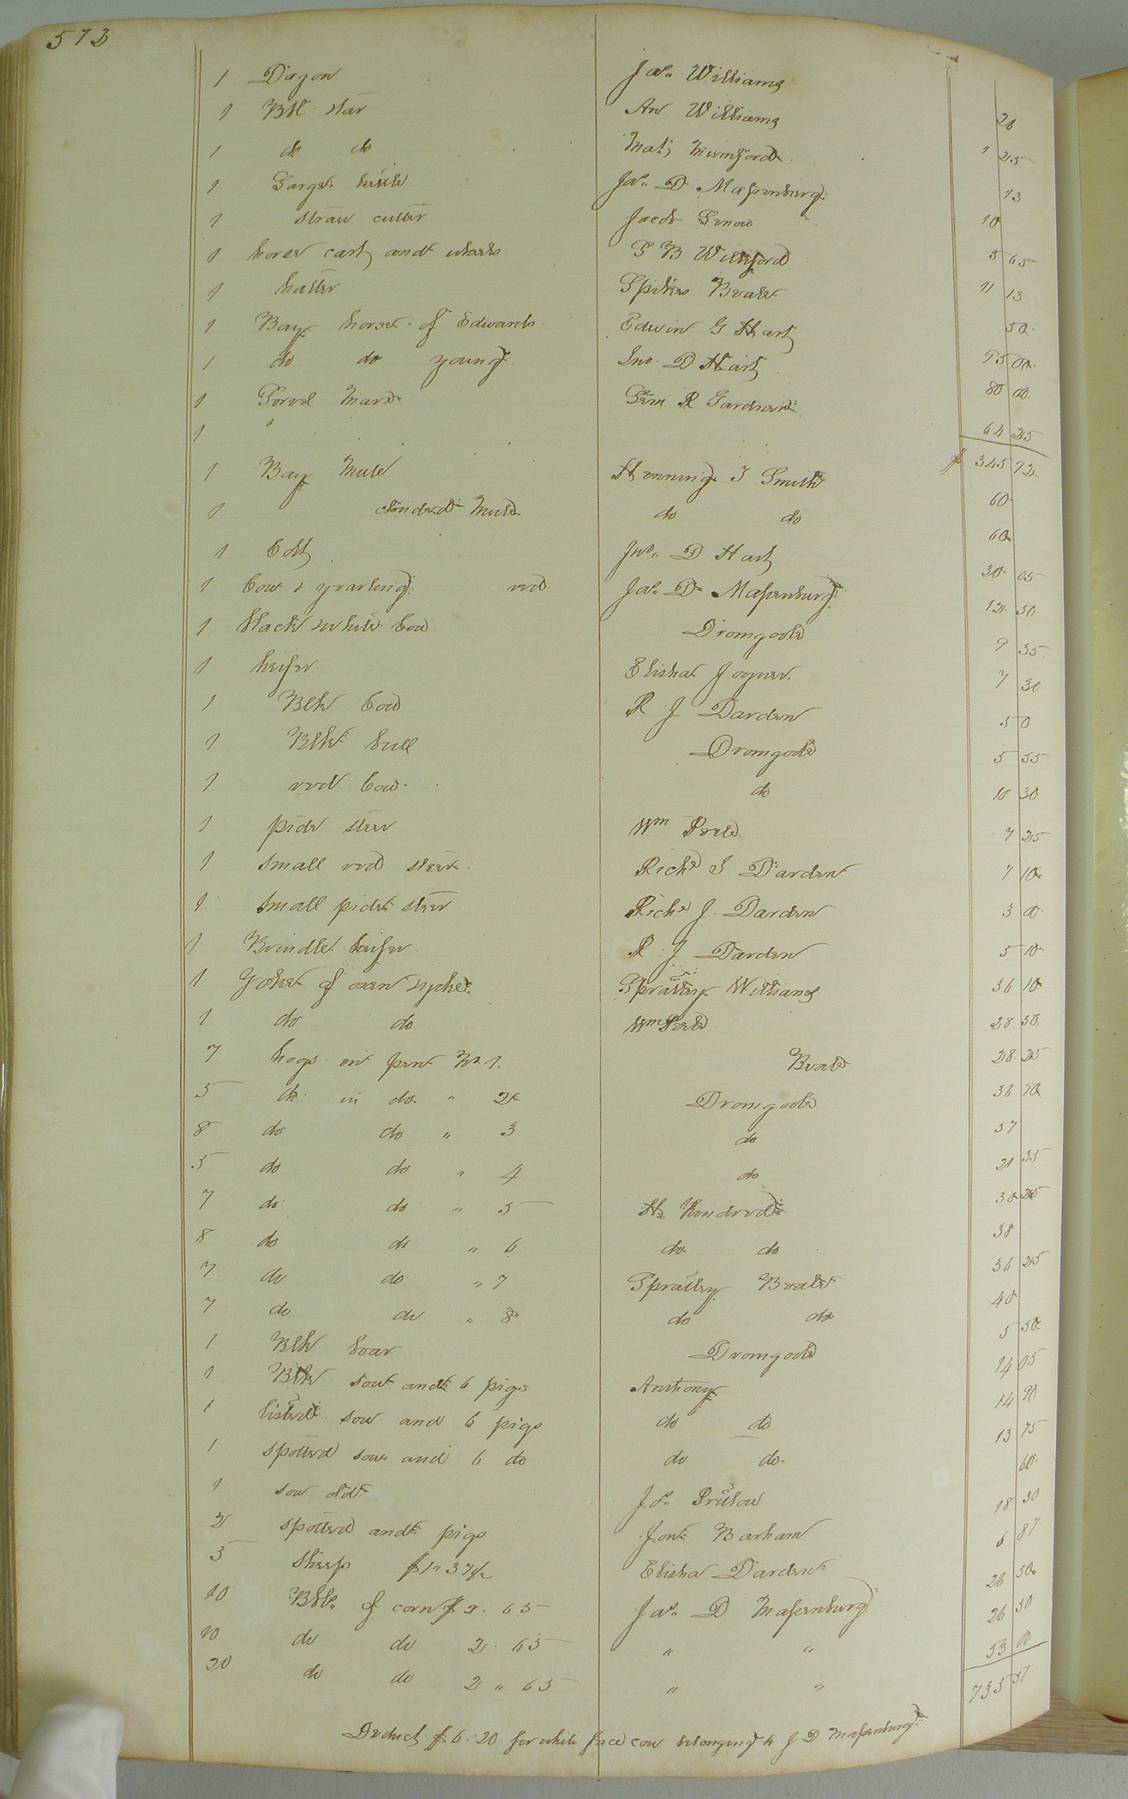 572
1 Dagon Jas. Williams
1 Bbl tar An Williams 26
1 do do Mat; Mumford 1 25
1 Large kettle Jas. D Massenburg 13
1 straw cutter Jacob 10
1 horse cart and wheels G B Williford 3 65
1 halter Beale 11 13
1 Bay horse of Edwards Edwin G Hart 50
1 do do young Jno. D Hart 95 00
1 Sorrel Mare R Gardner 80 00
1 " 64 25
$ 345 72
1 Bay Mule Henning T Smith 60
1 Mule do do 60
1 Colt Jno. D Hart 30 05
1 Cow & yearling red Jas. D. Massenburg 12 50
1 black white Cow Dromgoole 9 35
1 heifer Elisha Joyner 7 30
1 Blk Cow R J Darden 50
1 Blk bull Dromgoole 5 55
1 red Cow do 10 30
1 pide steer Wm 7 25
1 small red steer Richd J Darden 7 10
1 small pide steer Richd J. Darden 3 00
1 Brindle heifer R J Darden 5 10
1 Yoke of oxen Spratley Williams 36 10
1 do do Wm 28 50
7 hogs in pen No 1. Beale 28 25
5 do in do " 2 Dromgoole 36 70
8 do do " 3 do 37
5 do do " 4 do 21 35
7 do do " 5 H Kindred 30 25
8 do do " 6 do do 38
7 do do " 7 Spratley Beale 36 25
7 do do " 8 do do 40
1 Blk boar Dromgoole 5 50
1 Blk sow and 6 pigs Anthony 14 05
1 listed sow and 6 pigs do do 14 90
1 spotted sow and 6 do do do 13 75
1 sow old Jas. Prulow 60
2 spotted and pigs Jont Barham 18 30
5 sheep $1 " 37½ Elisha Darden 6 87
10 Bbls of corn $2. 65 Jas. D Massenburg 26 50
10 do do 2. 65 " " 26 50
20 do do 2 " 65 " " 53 00
735 57
Deduct $6.20 for white face cow belonging to J D Massenburg